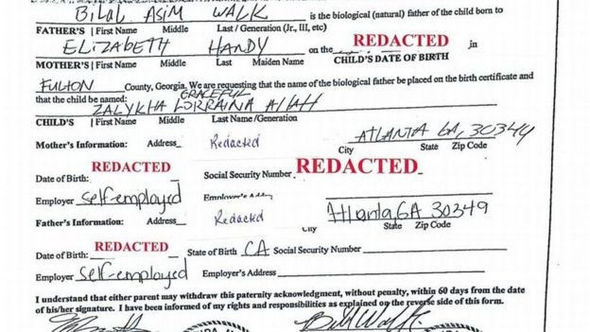 BILAL ASIM WALK is the biological (natural) father of the child born to
FATHER'S | First Name Middle Last / Generation (Jr., III, etc)
ELIZABETH HANDY on the REDACTED in
MOTHER'S | First Name Middle Last Maiden Name CHILD'S DATE OF BIRTH
FULTON County, Georgia. We are requesting that the name of the biological father be placed on the birth certificate and
that the child be named:
GRACEFUL
ZALYKHA LORRAINA ALLAH
CHILD'S | First Name Middle Last Name /Generation
Mother's Information: Address Redacted ATLANTA GA, 30349
City State Zip Code
Date of Birth: REDACTED Social Security Number REDACTED
Employer self-employed Employer's
Father's Information: Address Redacted Atlanta, GA 30349
City State Zip Code
Date of Birth: REDACTED State of Birth CA Social Security Number
Employer self-employed Employer's Address
I understand that either parent may withdraw this paternity acknowledgment, without penalty, within 60 days from the date
of his/her signature. I have been informed of my rights and responsibilities as explained on the reverse side of this form.